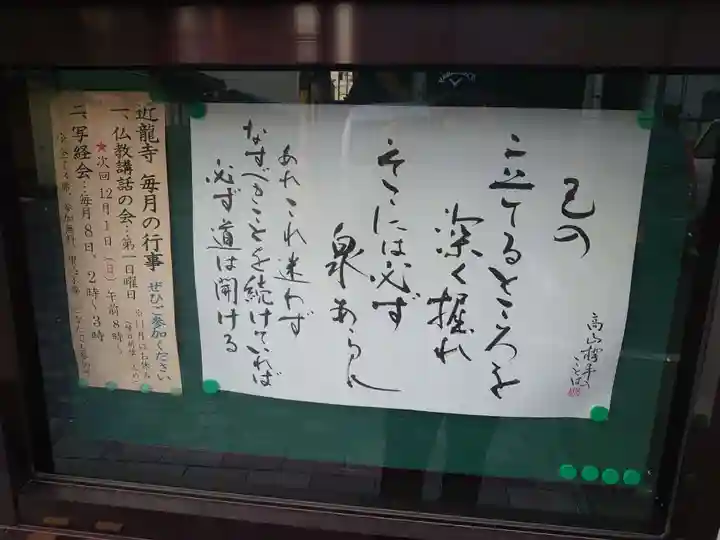 高山樗牛
ことば
己の
立てるところを
深く掘れ
そこには必ず
泉あらん
あれこれ迷わず
なすべきことを続けていれば
必ず道は開ける
近龍寺 毎月の行事 ぜひご参加ください
一、仏教講話の会…第一日曜日 ※11月はお休み
★次回12月1日(日)午前8時~
二、写経会…毎月8日、2時~3時
Callaway